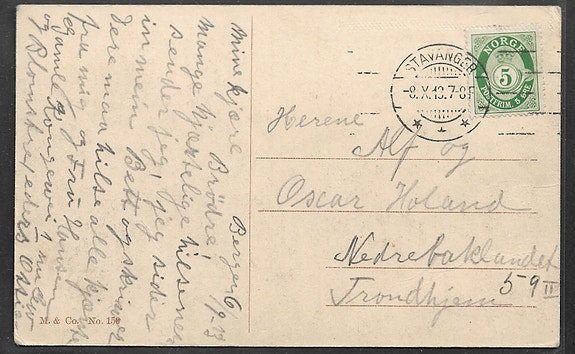 Bergen 6/9-13
Mine kjære
Brödre!
Mange hjertelige hilsener
sender jeg, jeg sider
in mem Bett og skriver
Dere maa hilse alle kjente
fra mig og Fru Hansen
og
og Blomster
M. & Co. No. 150
STAVANGER
-8.X.13.7-8E
NORGE
5
POSTFRIM. 5 ØRE
Herene
Alf og
Oscar Holand
Nedrebaklandet
59 II
Trondhjem